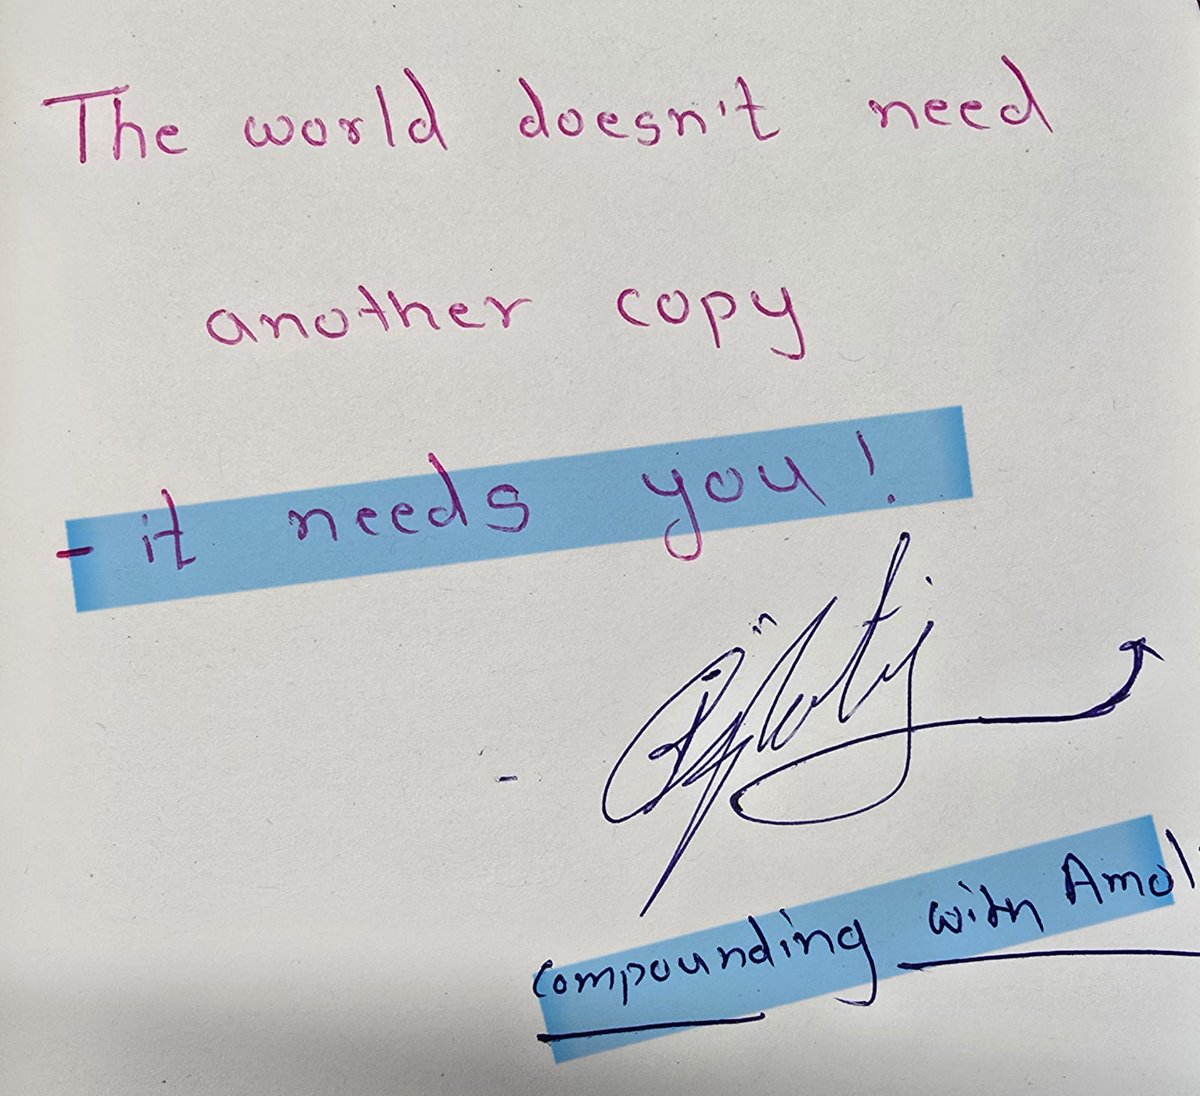 The world doesn't need
another copy
- it needs you!
compounding with Amol